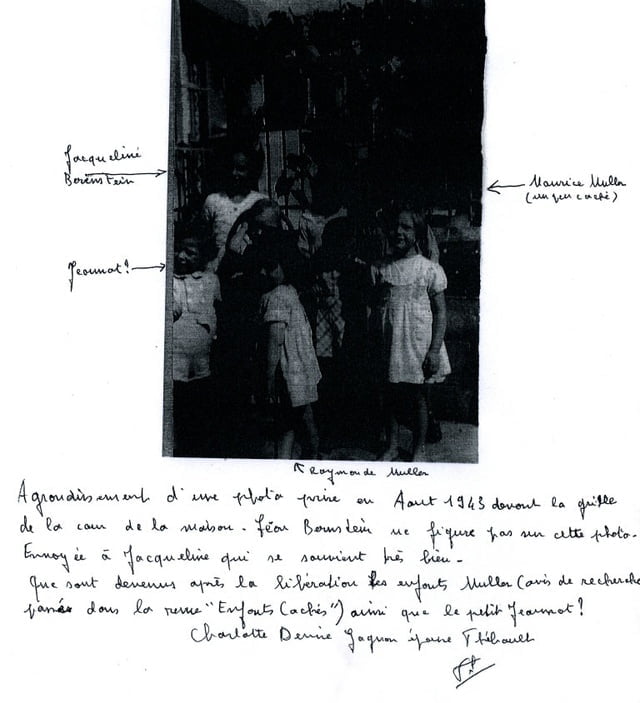 Jacqueline
Borenstein
Maurice Muller
(un peu caché)
Jeannot?
Raymonde Muller
Agrandissement d'une photo prise en Aout 1943 devant la grille
de la cour de la maison. Jean Bornstein ne figure pas sur cette photo.
Envoyée à Jacqueline qui se souvient très bien.
Que sont devenus après la libération les enfants Muller (avis de recherche
dans la revue "Enfants Cachés") ainsi que le petit Jeannot?
Charlotte Denise Gagnon épouse Thébault